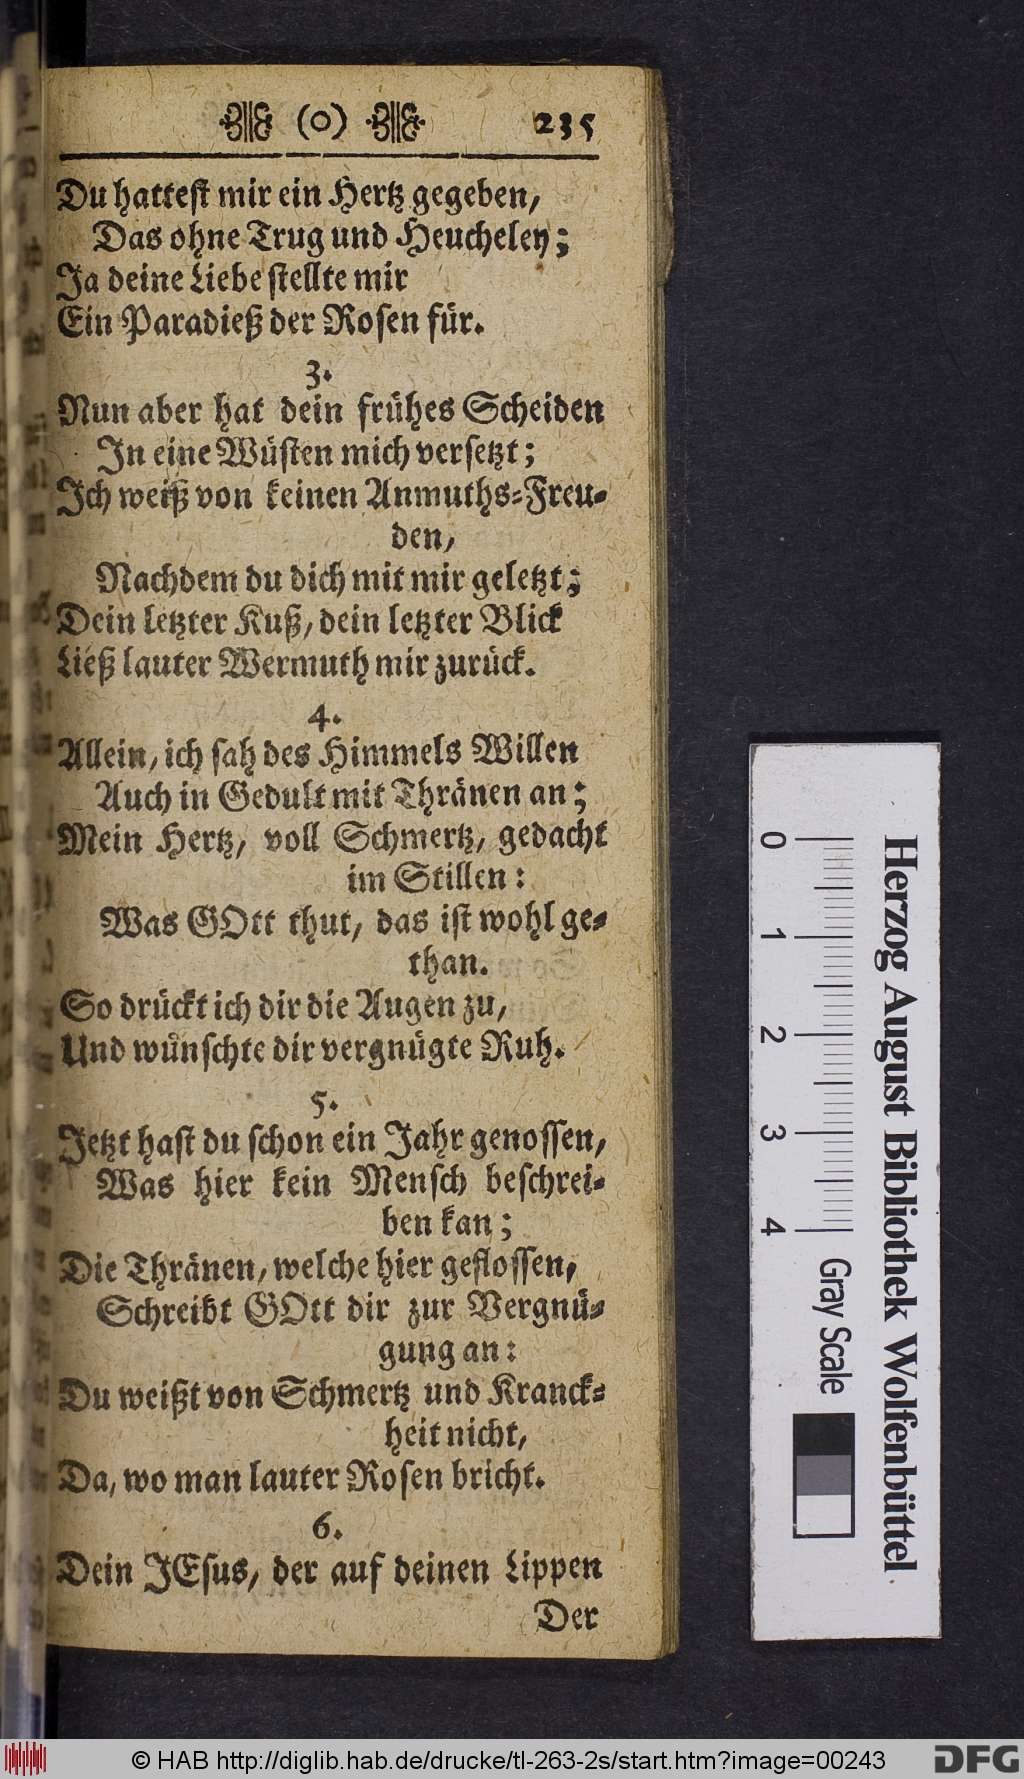 (o) 235
Du hattest mir ein Hertz gegeben,
Das ohne Trug und Heucheley;
Ja deine Liebe stellte mir
Ein Paradieß der Rosen für.
3.
Nun aber hat dein frühes Scheiden
In eine Wüsten mich versetzt;
Ich weiß von keinen Anmuths-Freu-
den,
Nachdem du dich mit mir geletzt;
Dein letzter Kuß, dein letzter Blick
Ließ lauter Wermuth mir zurück.
4.
Allein, ich sah des Himmels Willen
Auch in Gedult mit Thränen an;
Mein Hertz, voll Schmertz, gedacht
im Stillen:
Was GOtt thut, das ist wohl ge-
than.
So drückt ich dir die Augen zu,
Und wünschte dir vergnügte Ruh.
5.
Jetzt hast du schon ein Jahr genossen,
Was hier kein Mensch beschrei-
ben kan;
Die Thränen, welche hier geflossen,
Schreibt GOtt dir zur Vergnü-
gung an:
Du weißt von Schmertz und Kranck-
heit nicht,
Da, wo man lauter Rosen bricht.
6.
Dein JEsus, der auf deinen Lippen
Der
Herzog August Bibliothek Wolfenbüttel
0 1 2 3 4
Gray Scale
© HAB http://diglib.hab.de/drucke/tl-263-2s/start.htm?image=00243
DFG